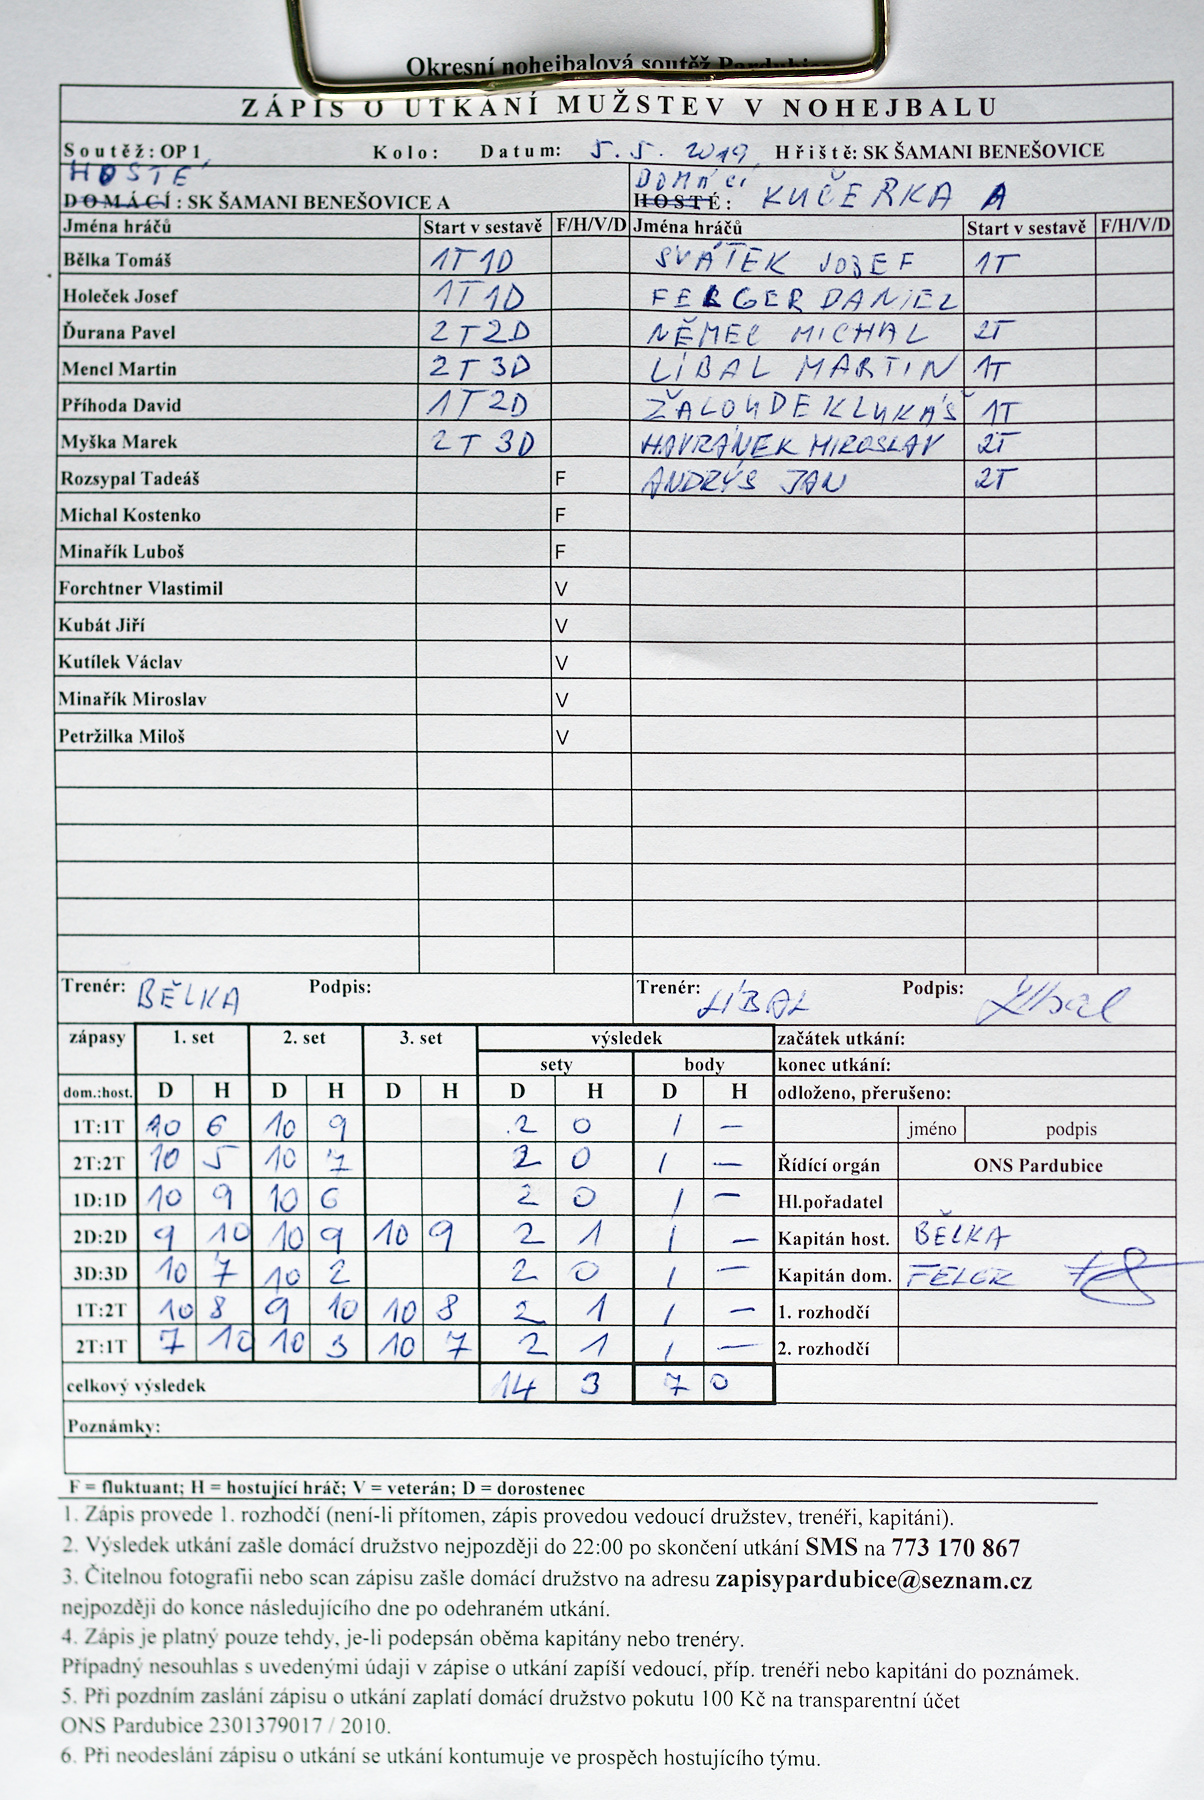 Okresní nohejbalová soutěž
ZÁPIS O UTKÁNÍ MUŽSTEV V NOHEJBALU
Soutěž: OP 1 Kolo: Datum: 5.5. 2019 Hřiště: SK ŠAMANI BENEŠOVICE
HOSTÉ DOMÁCÍ
DOMÁCÍ : SK ŠAMANI BENEŠOVICE A HOSTÉ: KUČERKA A
Jména hráčů Start v sestavě F/H/V/D Jména hráčů Start v sestavě F/H/V/D
Bělka Tomáš 1T1D SVÁTEK JOSEF 1T
Holeček Josef 1T1D FERGER DANIEL
Ďurana Pavel 2T2D NĚMEC MICHAL 2T
Mencl Martin 2T3D LÍBAL MARTIN 1T
Příhoda David 1T2D ŽALOUDEK LUKÁŠ 1T
Myška Marek 2T3D HAVRÁNEK MIROSLAV 2T
Rozsypal Tadeáš F ANDRÝS JAN 2T
Michal Kostenko F
Minařík Luboš F
Forchtner Vlastimil V
Kubát Jiří V
Kutílek Václav V
Minařík Miroslav V
Petržilka Miloš V
Trenér: BĚLKA Podpis: Trenér: LÍBAL Podpis: Líbal
zápasy 1. set 2. set 3. set výsledek začátek utkání:
sety body konec utkání:
dom.:host. D H D H D H D H D H odloženo, přerušeno:
1T:1T 10 6 10 9 2 0 1 – jméno podpis
2T:2T 10 5 10 7 2 0 1 – Řídící orgán ONS Pardubice
1D:1D 10 9 10 6 2 0 1 – Hl.pořadatel
2D:2D 9 10 10 9 10 9 2 1 1 – Kapitán host. BĚLKA
3D:3D 10 7 10 2 2 0 1 – Kapitán dom.
1T:2T 10 8 9 10 10 8 2 1 1 – 1. rozhodčí
2T:1T 7 10 10 3 10 7 2 1 1 – 2. rozhodčí
celkový výsledek 14 3 7 0
Poznámky:
F = fluktuant; H = hostující hráč; V = veterán; D = dorostenec
1. Zápis provede 1. rozhodčí (není-li přítomen, zápis provedou vedoucí družstev, trenéři, kapitáni).
2. Výsledek utkání zašle domácí družstvo nejpozději do 22:00 po skončení utkání SMS na 773 170 867
3. Čitelnou fotografii nebo scan zápisu zašle domácí družstvo na adresu zapisypardubice@seznam.cz
nejpozději do konce následujícího dne po odehraném utkání.
4. Zápis je platný pouze tehdy, je-li podepsán oběma kapitány nebo trenéry.
Případný nesouhlas s uvedenými údaji v zápise o utkání zapíší vedoucí, příp. trenéři nebo kapitáni do poznámek.
5. Při pozdním zaslání zápisu o utkání zaplatí domácí družstvo pokutu 100 Kč na transparentní účet
ONS Pardubice 2301379017 / 2010.
6. Při neodeslání zápisu o utkání se utkání kontumuje ve prospěch hostujícího týmu.